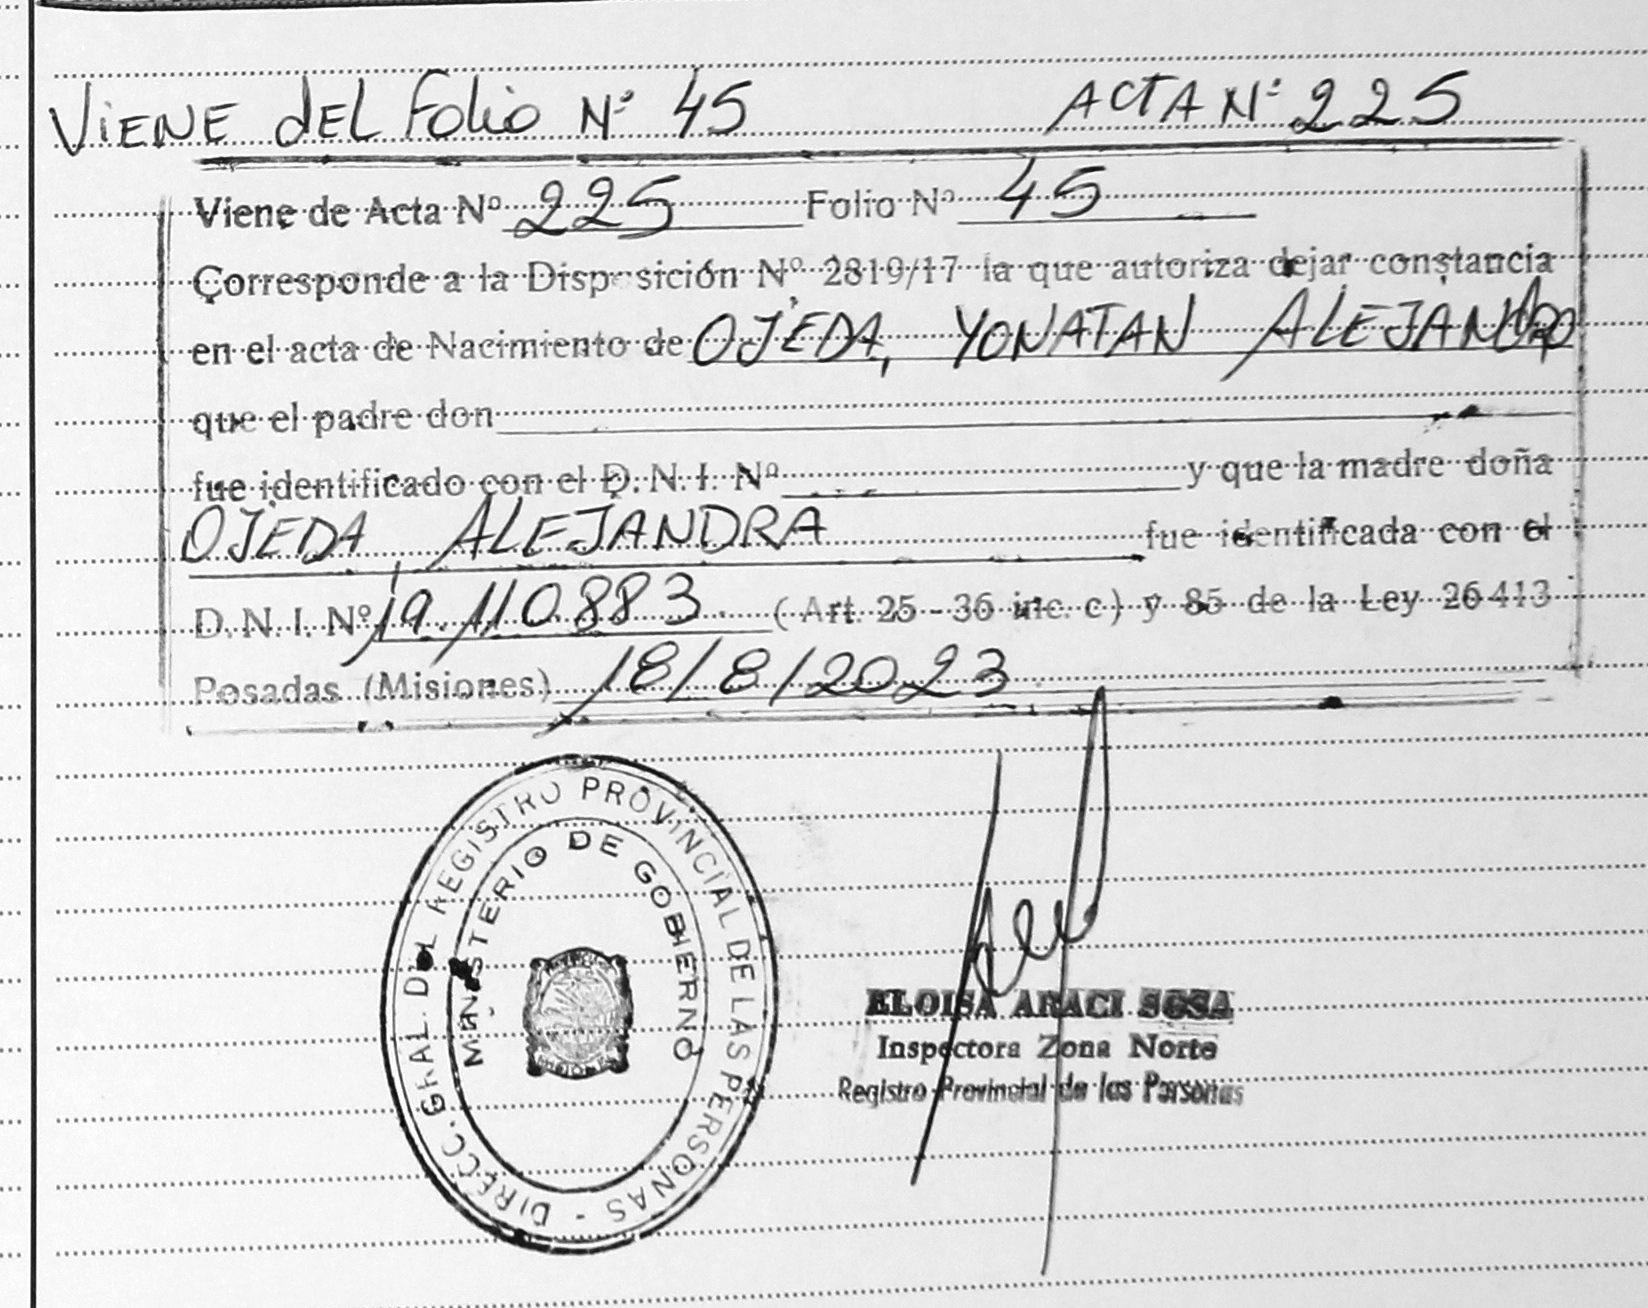 VIENE dEL FOLIO Nº 45 ACTA Nº 225
Viene de Acta Nº 225 Folio Nº 45
Corresponde a la Disposición Nº 2819/17 la que autoriza dejar constancia
en el acta de Nacimiento de OJEDA, YONATAN ALEJANDRO
que el padre don
fue identificado con el D. N. I. Nº y que la madre doña
OJEDA, ALEJANDRA fue identificada con el
D. N. I. Nº 19.110.883 (Art. 25 - 36 inc. c) y 85 de la Ley 26413
Posadas (Misiones) 18/8/2023
DIRECC. GRAL. DEL REGISTRO PROVINCIAL DE LAS PERSONAS -
MINISTERIO DE GOBIERNO
ELOISA ARACI SOSA
Inspectora Zona Norte
Registro Provincial de las Personas